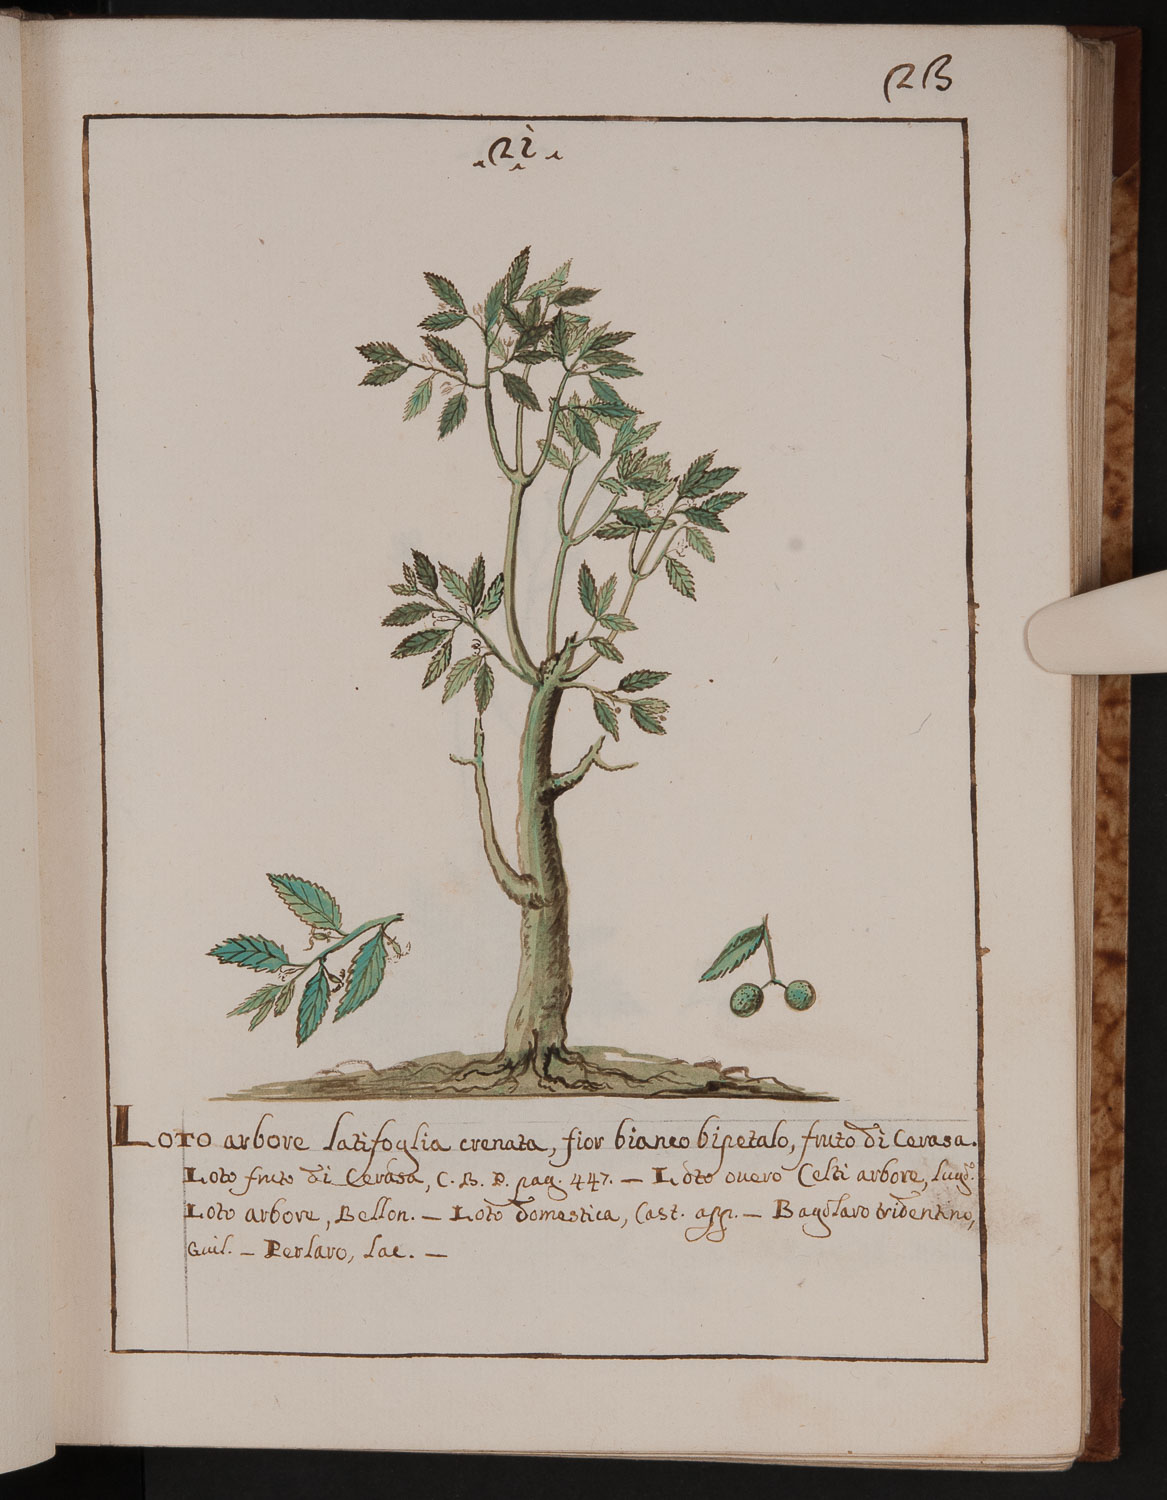 Loto arbore latifoglia crenata, fior bianco bipetalo, fruto di Cerasa.
Loto fruto di Cerasa, C. B. P. pag. 447. — Loto overo Celti arbore, Lugd.
Loto arbore, Bellon. — Loto domestica, Cast. app. — Bagolaro tridentino,
Guil. — Perlaro, Lac. —